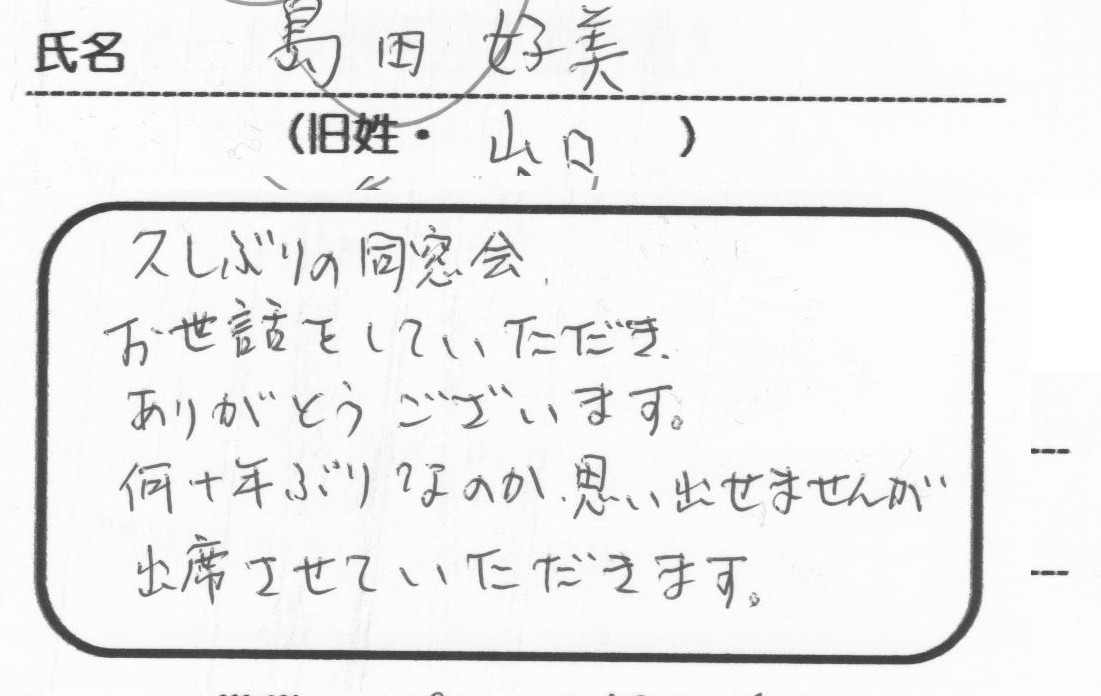 氏名 島田 好美
(旧姓・ 山口 )
久しぶりの同窓会、
お世話をしていただき、
ありがとうございます。
何十年ぶりなのか、思い出せませんが
出席させていただきます。